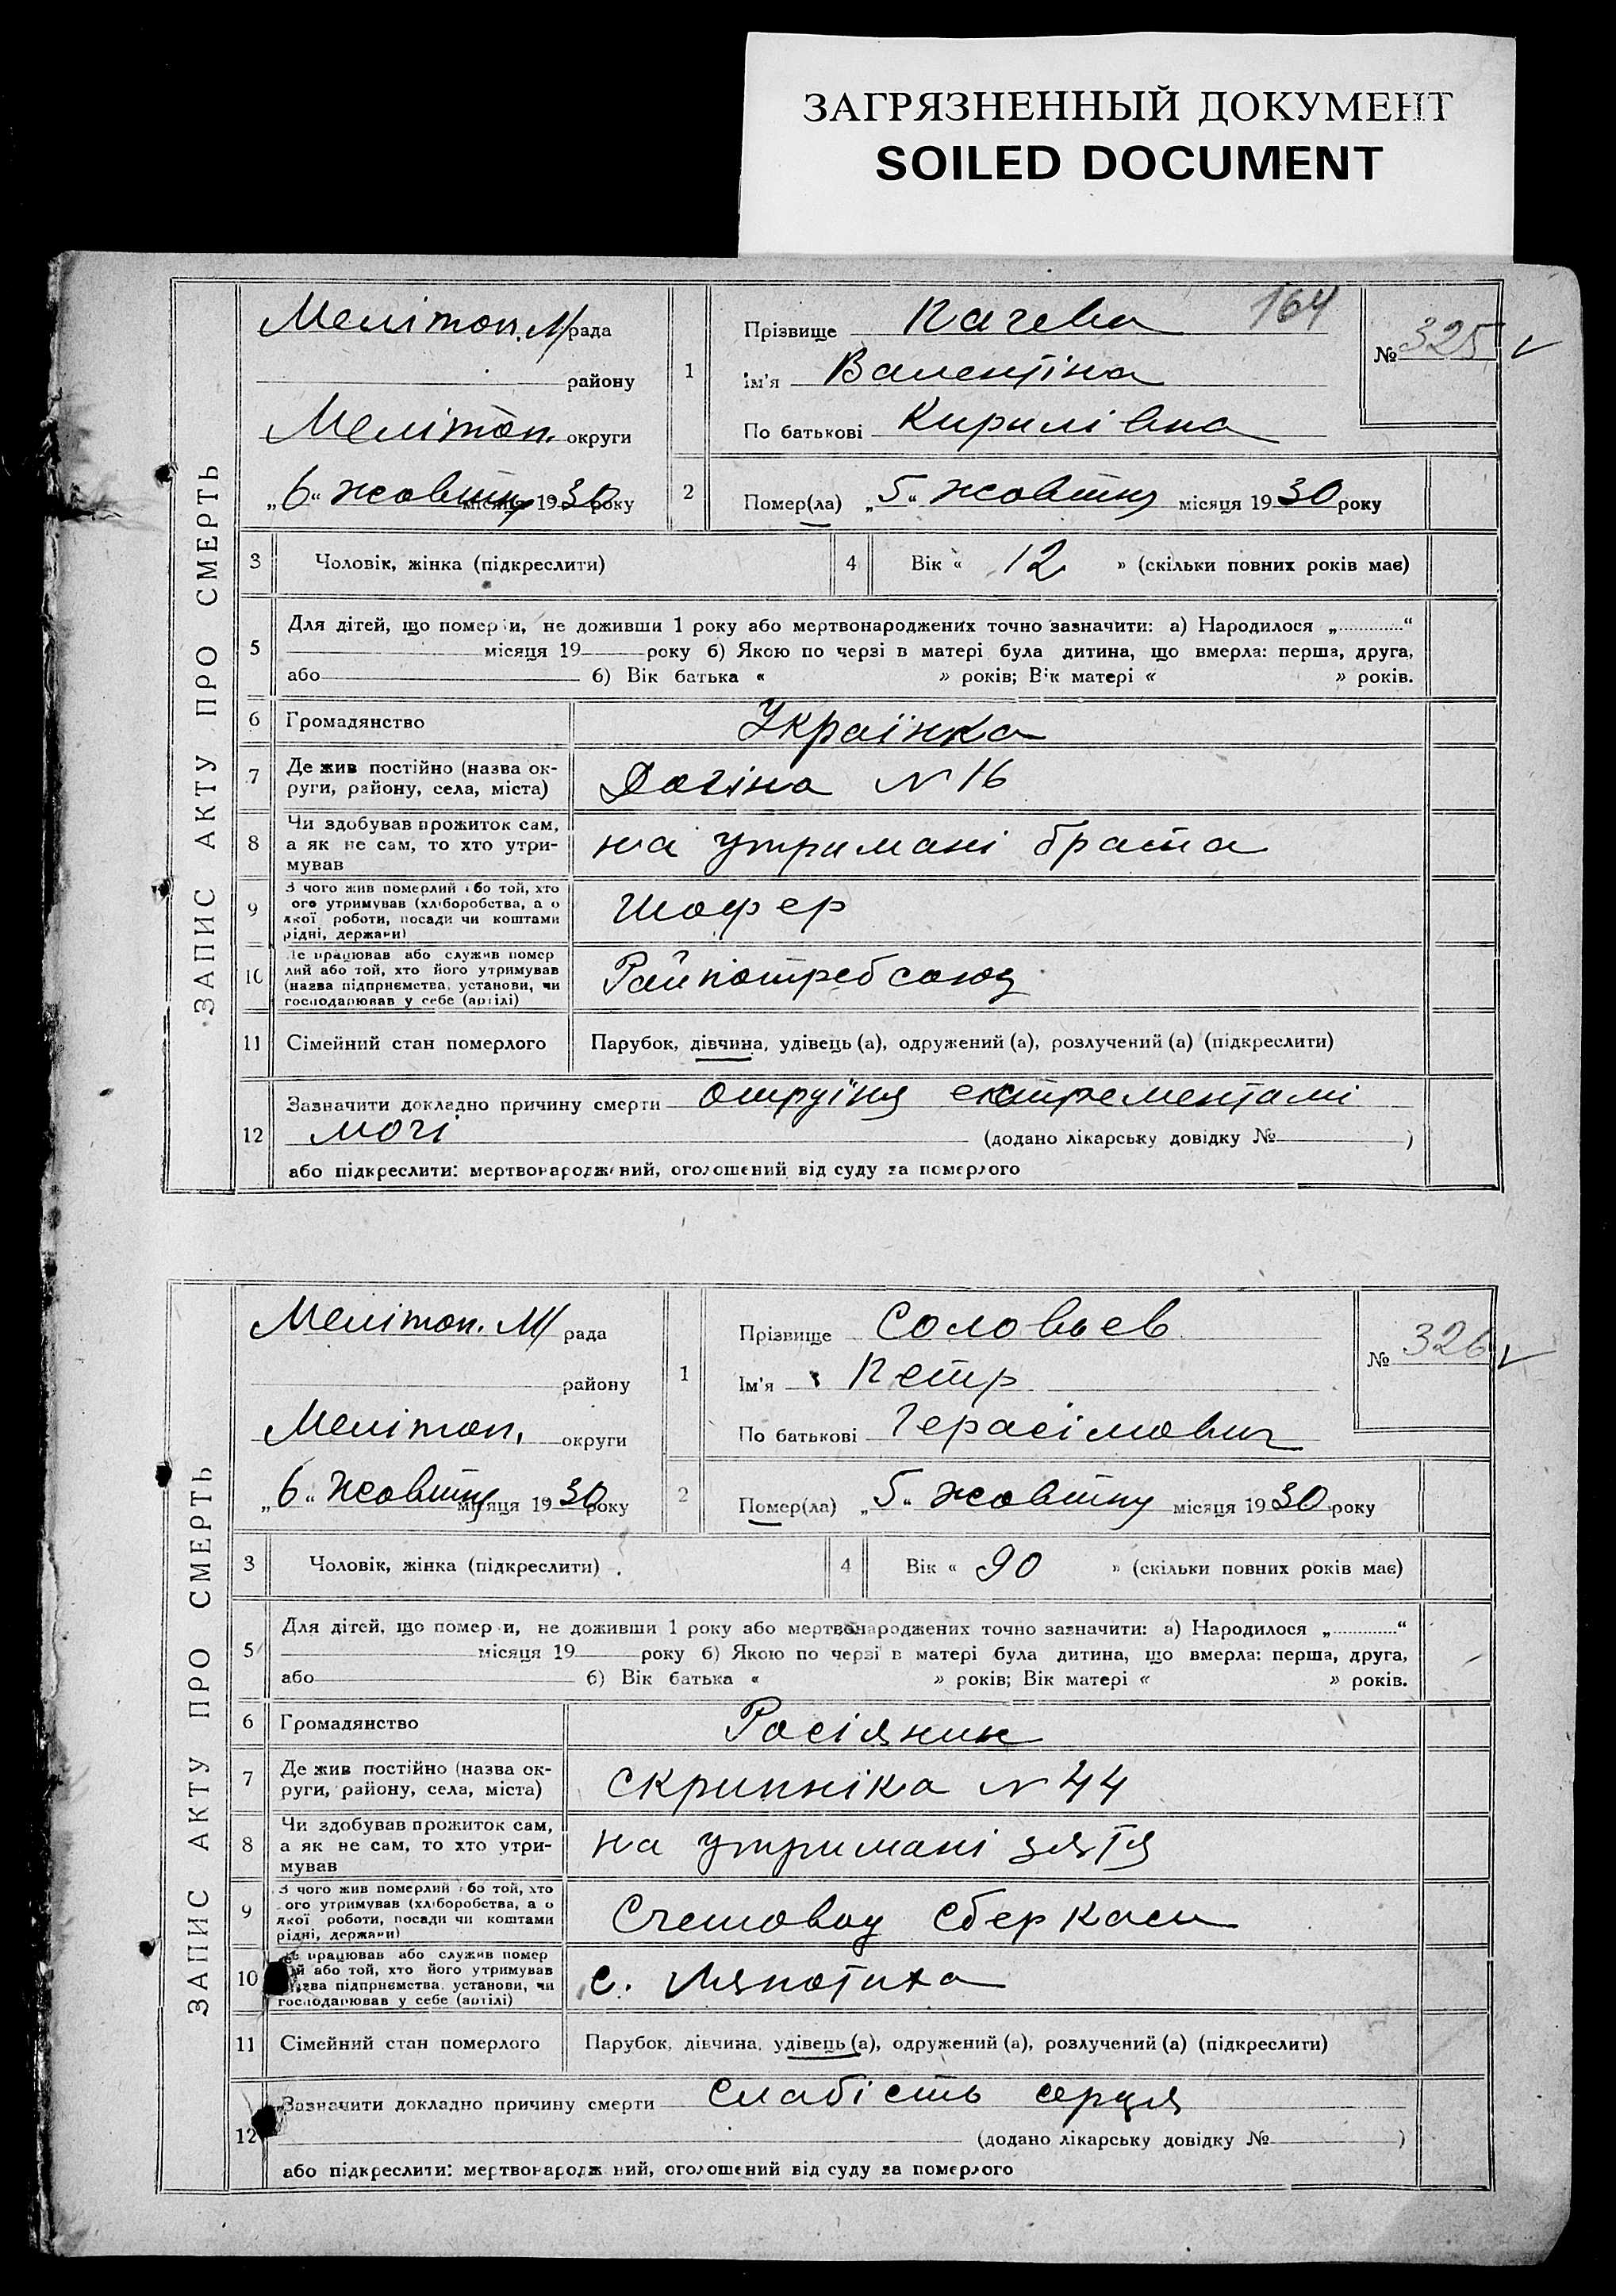 ЗАГРЯЗНЕННЫЙ ДОКУМЕНТ
SOILED DOCUMENT
164
ЗАПИС АКТУ ПРО СМЕРТЬ
Мелітоп. М/рада
району
Мелітоп. округи
„6“ жовтня місяця 1930 року
1
Прізвище Качева
Ім'я Валентіна
По батькові Кирилівна
№ 325 ✓
2
Помер(ла) „5“ жовтня місяця 1930 року
3 Чоловік, жінка (підкреслити)
4 Вік « 12 » (скільки повних років має)
5 Для дітей, що помер и, не доживши 1 року або мертвонароджених точно зазначити: а) Народилося „............“
місяця 19 року б) Якою по черзі в матері була дитина, що вмерла: перша, друга,
або б) Вік батька « » років; Вік матері « » років.
6 Громадянство Українка
7 Де жив постійно (назва ок-
руги, району, села, міста) N 16
8 Чи здобував прожиток сам,
а як не сам, то хто утри-
мував на утримані брата
9 З чого жив померлий або той, хто
ого утримував (хліборобства, а о
якої роботи, посади чи коштами
рідні, держави) Шофер
10 Де працював або служив помер
лий або той, хто його утримував
(назва підприємства, установи, чи
господарював у себе (артілі) Райпотребсоюз
11 Сімейний стан померлого Парубок, дівчина, удівець (а), одружений (а), розлучений (а) (підкреслити)
12 Зазначити докладно причину смерти отруїня екстрементамі
мочі (додано лікарську довідку № )
або підкреслити: мертвонароджений, оголошений від суду за померлого
ЗАПИС АКТУ ПРО СМЕРТЬ
Мелітоп. М/ рада
району
Мелітоп. округи
„6“ жовтня місяця 1930 року
1
Прізвище Соловьев
Ім'я Петр
По батькові Герасімович
№ 326 ✓
2
Помер(ла) „5“ жовтня місяця 1930 року
3 Чоловік, жінка (підкреслити)
4 Вік « 90 » (скільки повних років має)
5 Для дітей, що помер и, не доживши 1 року або мертвонароджених точно зазначити: а) Народилося „............“
місяця 19 року б) Якою по черзі в матері була дитина, що вмерла: перша, друга,
або б) Вік батька « » років; Вік матері « » років.
6 Громадянство Росіяник
7 Де жив постійно (назва ок-
руги, району, села, міста) Скрипніка N 44
8 Чи здобував прожиток сам,
а як не сам, то хто утри-
мував на утримані зятя
9 З чого жив померлий або той, хто
ого утримував (хліборобства, а о
якої роботи, посади чи коштами
рідні, держави) Счетовод Сберкаси
10 Де працював або служив помер
ий або той, хто його утримував
назва підприємства, установи, чи
господарював у себе (артілі) с. Ляпотиха
11 Сімейний стан померлого Парубок, дівчина, удівець (а), одружений (а), розлучений (а) (підкреслити)
12 Зазначити докладно причину смерти Слабість серця
(додано лікарську довідку № )
або підкреслити: мертвонародж ний, оголошений від суду за померлого